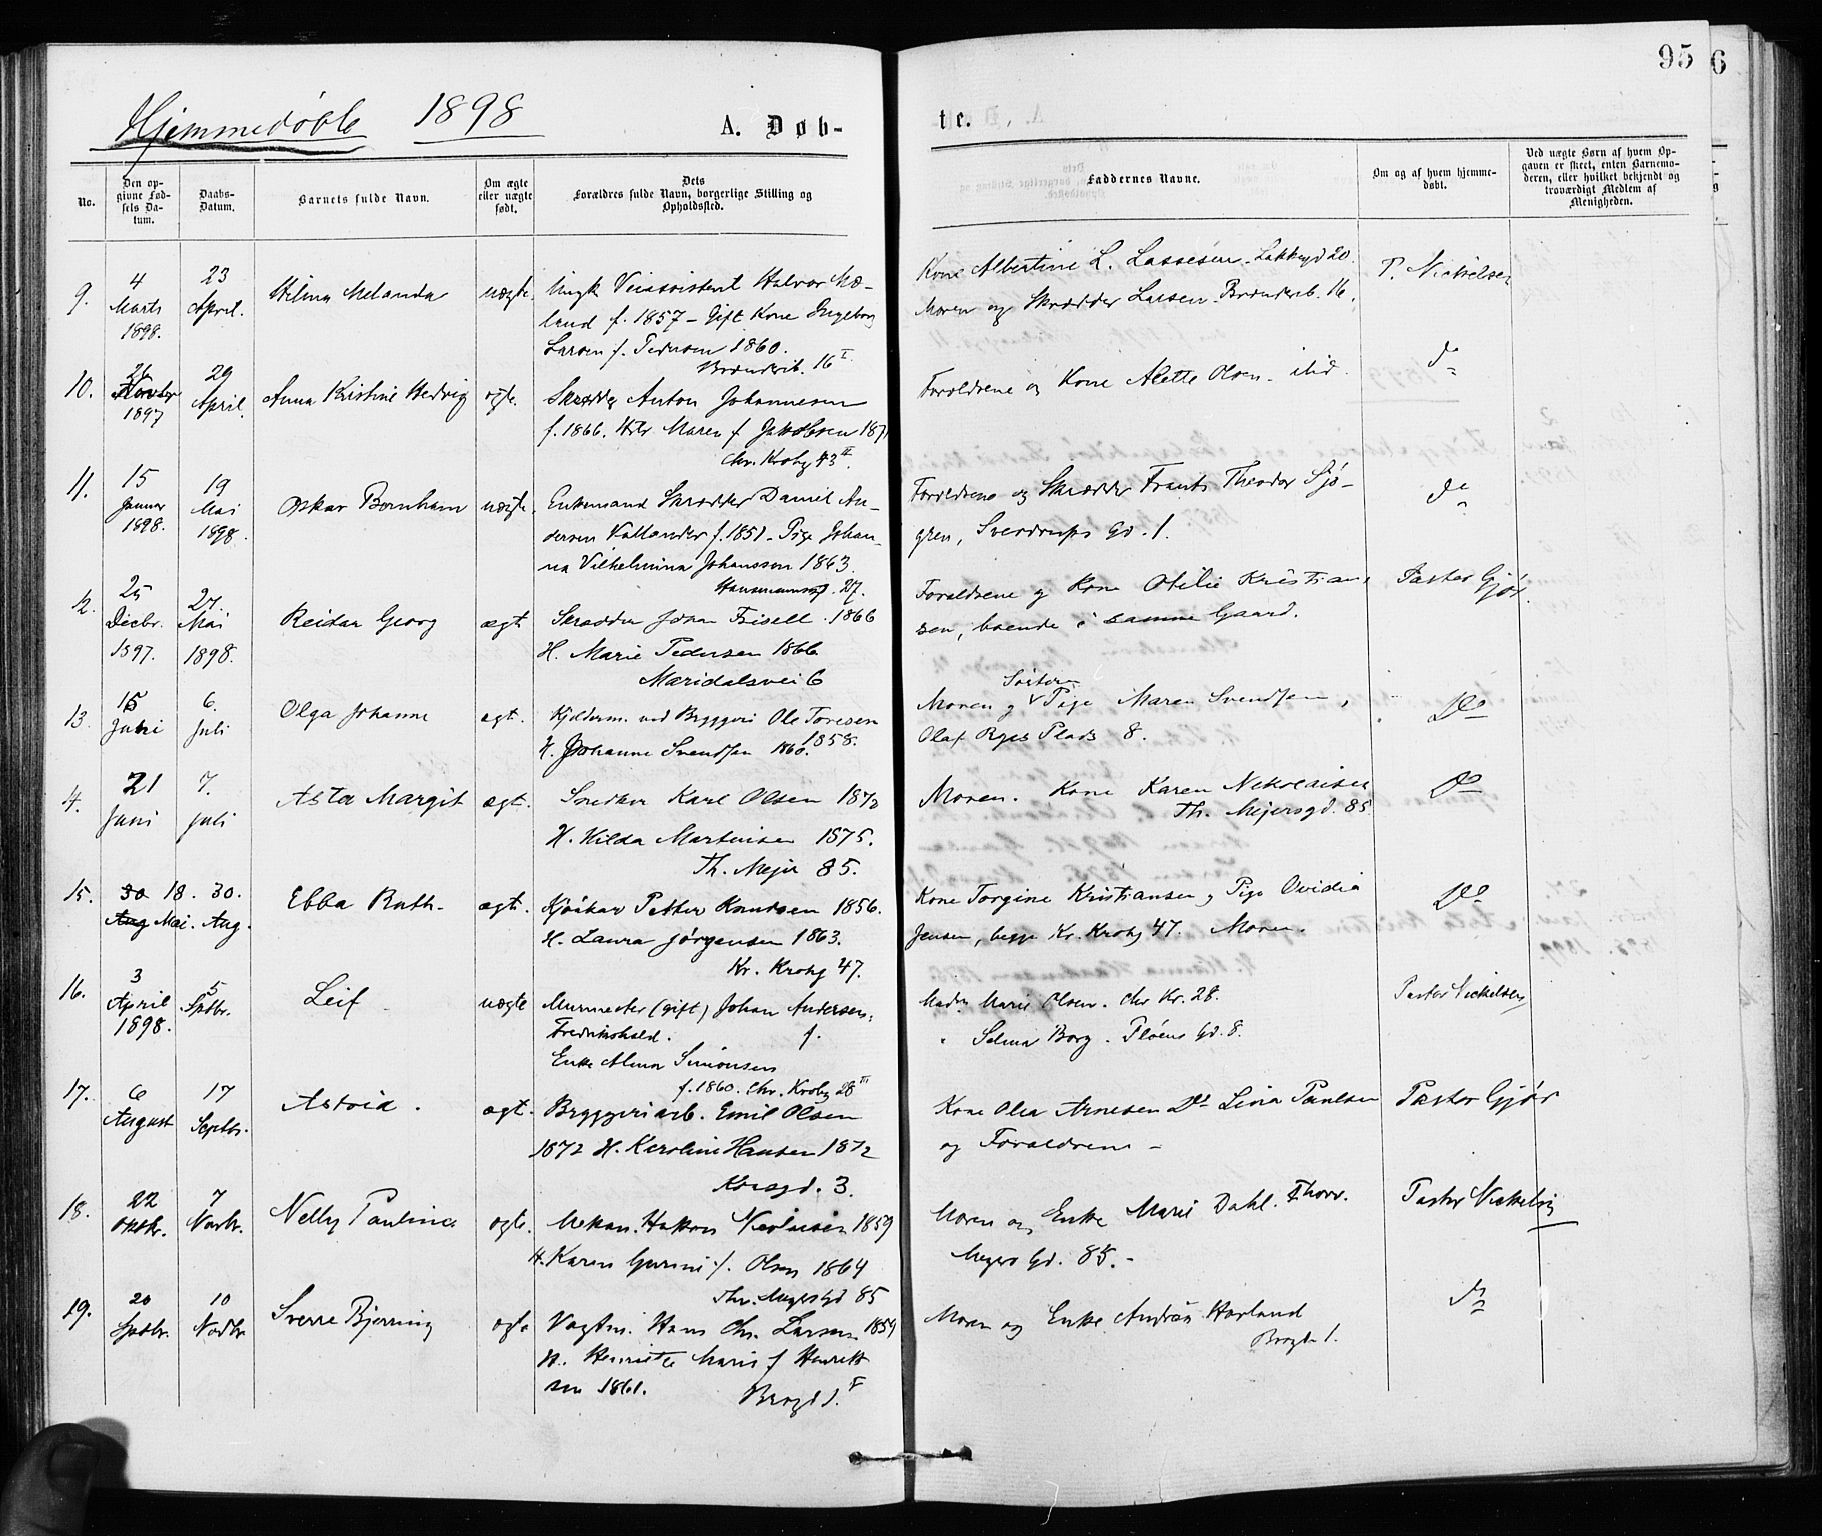 95
6
Hjemmedøbte 1898
A. Døb-
te.
No.
Den op-
givne Fød-
sels Da-
tum.
Daabs-
Datum.
Barnets fulde Navn.
Om ægte
eller uægte
født.
Dets
Forældres fulde Navn, borgerlige Stilling og
Opholdssted.
Faddernes Navne.
Om og af hvem hjemme-
døbt.
Ved uægte Børn af hvem Op-
gaven er skeet, enten Barnemo-
deren, eller hvilket bekjendt og
troværdigt Medlem af
Menigheden.
9. 4 Marts 1898. 23 April. Hilma Melanda uægte. Ungk Veiassistent Halvor Mæ-
land f. 1857 - Gift Kone Ingeborg
Larsen f. Pedersen 1860.
Brænderib. 16 I
Kone Albertine L. Lassesen. Lakkegd 20
Moren og Skrædder Larsen. Brænderib. 16.
P. Nickelsen
10. 26 Novbr 1897 29 April. Anna Kristine Hedvig ægte. Skrædder Anton Johannesen
f. 1866. Hstr Maren f Jakobsen 1871
Chr. Krohg 43 II.
Forældrene og Kone Alette Olsen - ibid.
do
11. 15 Januar 1898. 19 Mai 1898. Oskar Bornham uægte. Enkemand Skrædder Daniel An-
dersen Vallander f. 1851 - Pige Johan-
na Vilhelmina Johansson 1863.
Hausmannsgd. 27.
Forældrene og Skrædder Frants Theodor Sjø-
gren, Sverdrups Gd. 1.
do
12. 25 Decbr. 1897. 27. Mai 1898. Reidar Georg ægt. Skrædder Johan Frisell. 1866
H. Marie Pedersen 1866
Maridalsvei 6
Forældrene og Kone Otilie Kristian-
sen, boende i samme Gaard.
Pastor Gjør.
13. 15 Juni 6. Juli Olga Johanne ægt. Kjelderm. ved Bryggeri Ole Toresen
1858.
H. Johanne Svendsen 1860.
Søster
Moren og Pige Maren Svendsen,
Olaf Ryes Plads 8.
Do
14. 21 Juni 7. Juli Asta Margit ægt. Snedker Karl Olsen 1872
H. Hilda Martinsen 1875.
Th. Mejer 85.
Moren. Kone Karen Nikolaisen
Th. Mejersgd. 85.
Do
15. 30 Aug 18. Mai. 30. Aug. Ebba Ruth. ægt. Kjøskar Petter Knudsen 1856.
H. Laura Jørgensen 1863.
Kr. Krohg 47.
Kone Torgine Kristiansen og Pige Ovidia
Jensen, begge Kr. Krohg 47. Moren.
Do
16. 3 April 1898. 5 Septbr. Leif uægte Murmester (gift) Johan Andersen,
Fredrikshald. f.
Enke Alma Simonsen
f. 1860. Chr. Krohg 28 III
Madm Marie Olsen. Chr Kr. 28.
" Selma Borg. Pløens Gd. 8.
Pastor Nickelsen
17. 6 August 17 Septbr. Astrid. ægt. Bryggeriarb. Emil Olsen
1872 H. Karoline Hansen 1872
Korsgd. 3.
Kone Olea Arnesen Do Lina Paulsen
og Forældrene -
Pastor Gjør
18. 22 Oktbr. 7 Novbr. Nelly Paulina ægte. Mekan. Haakon Nicolaisen 1859
H. Karen Gurine f. Olsen 1864
Thv. Meyers Gd 85
Moren og Enke Marie Dahl. Thorv.
Meyers Gd. 85. -
Pastor Nickelsen
19. 20 Septbr. 10 Novbr. Sverre Bjerring ægte Vogtm. Hans Chr. Larsen 1859
H. Henriette Marie f Henrik-
sen 1861.
Brogd 1. V
Moren og Enke Andrea Hovland
Brogd. 1.
do